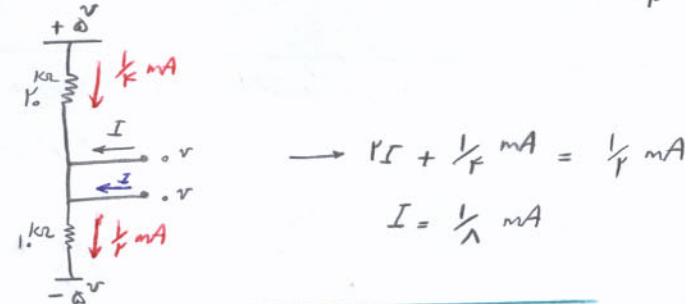 + ۵ v
۲۰ kΩ
۱/۴ mA
I
۰ v
I
۰ v
۱۰ kΩ
۱/۲ mA
- ۵ v
→ ۲I + ۱/۴ mA = ۱/۲ mA
I = ۱/۸ mA